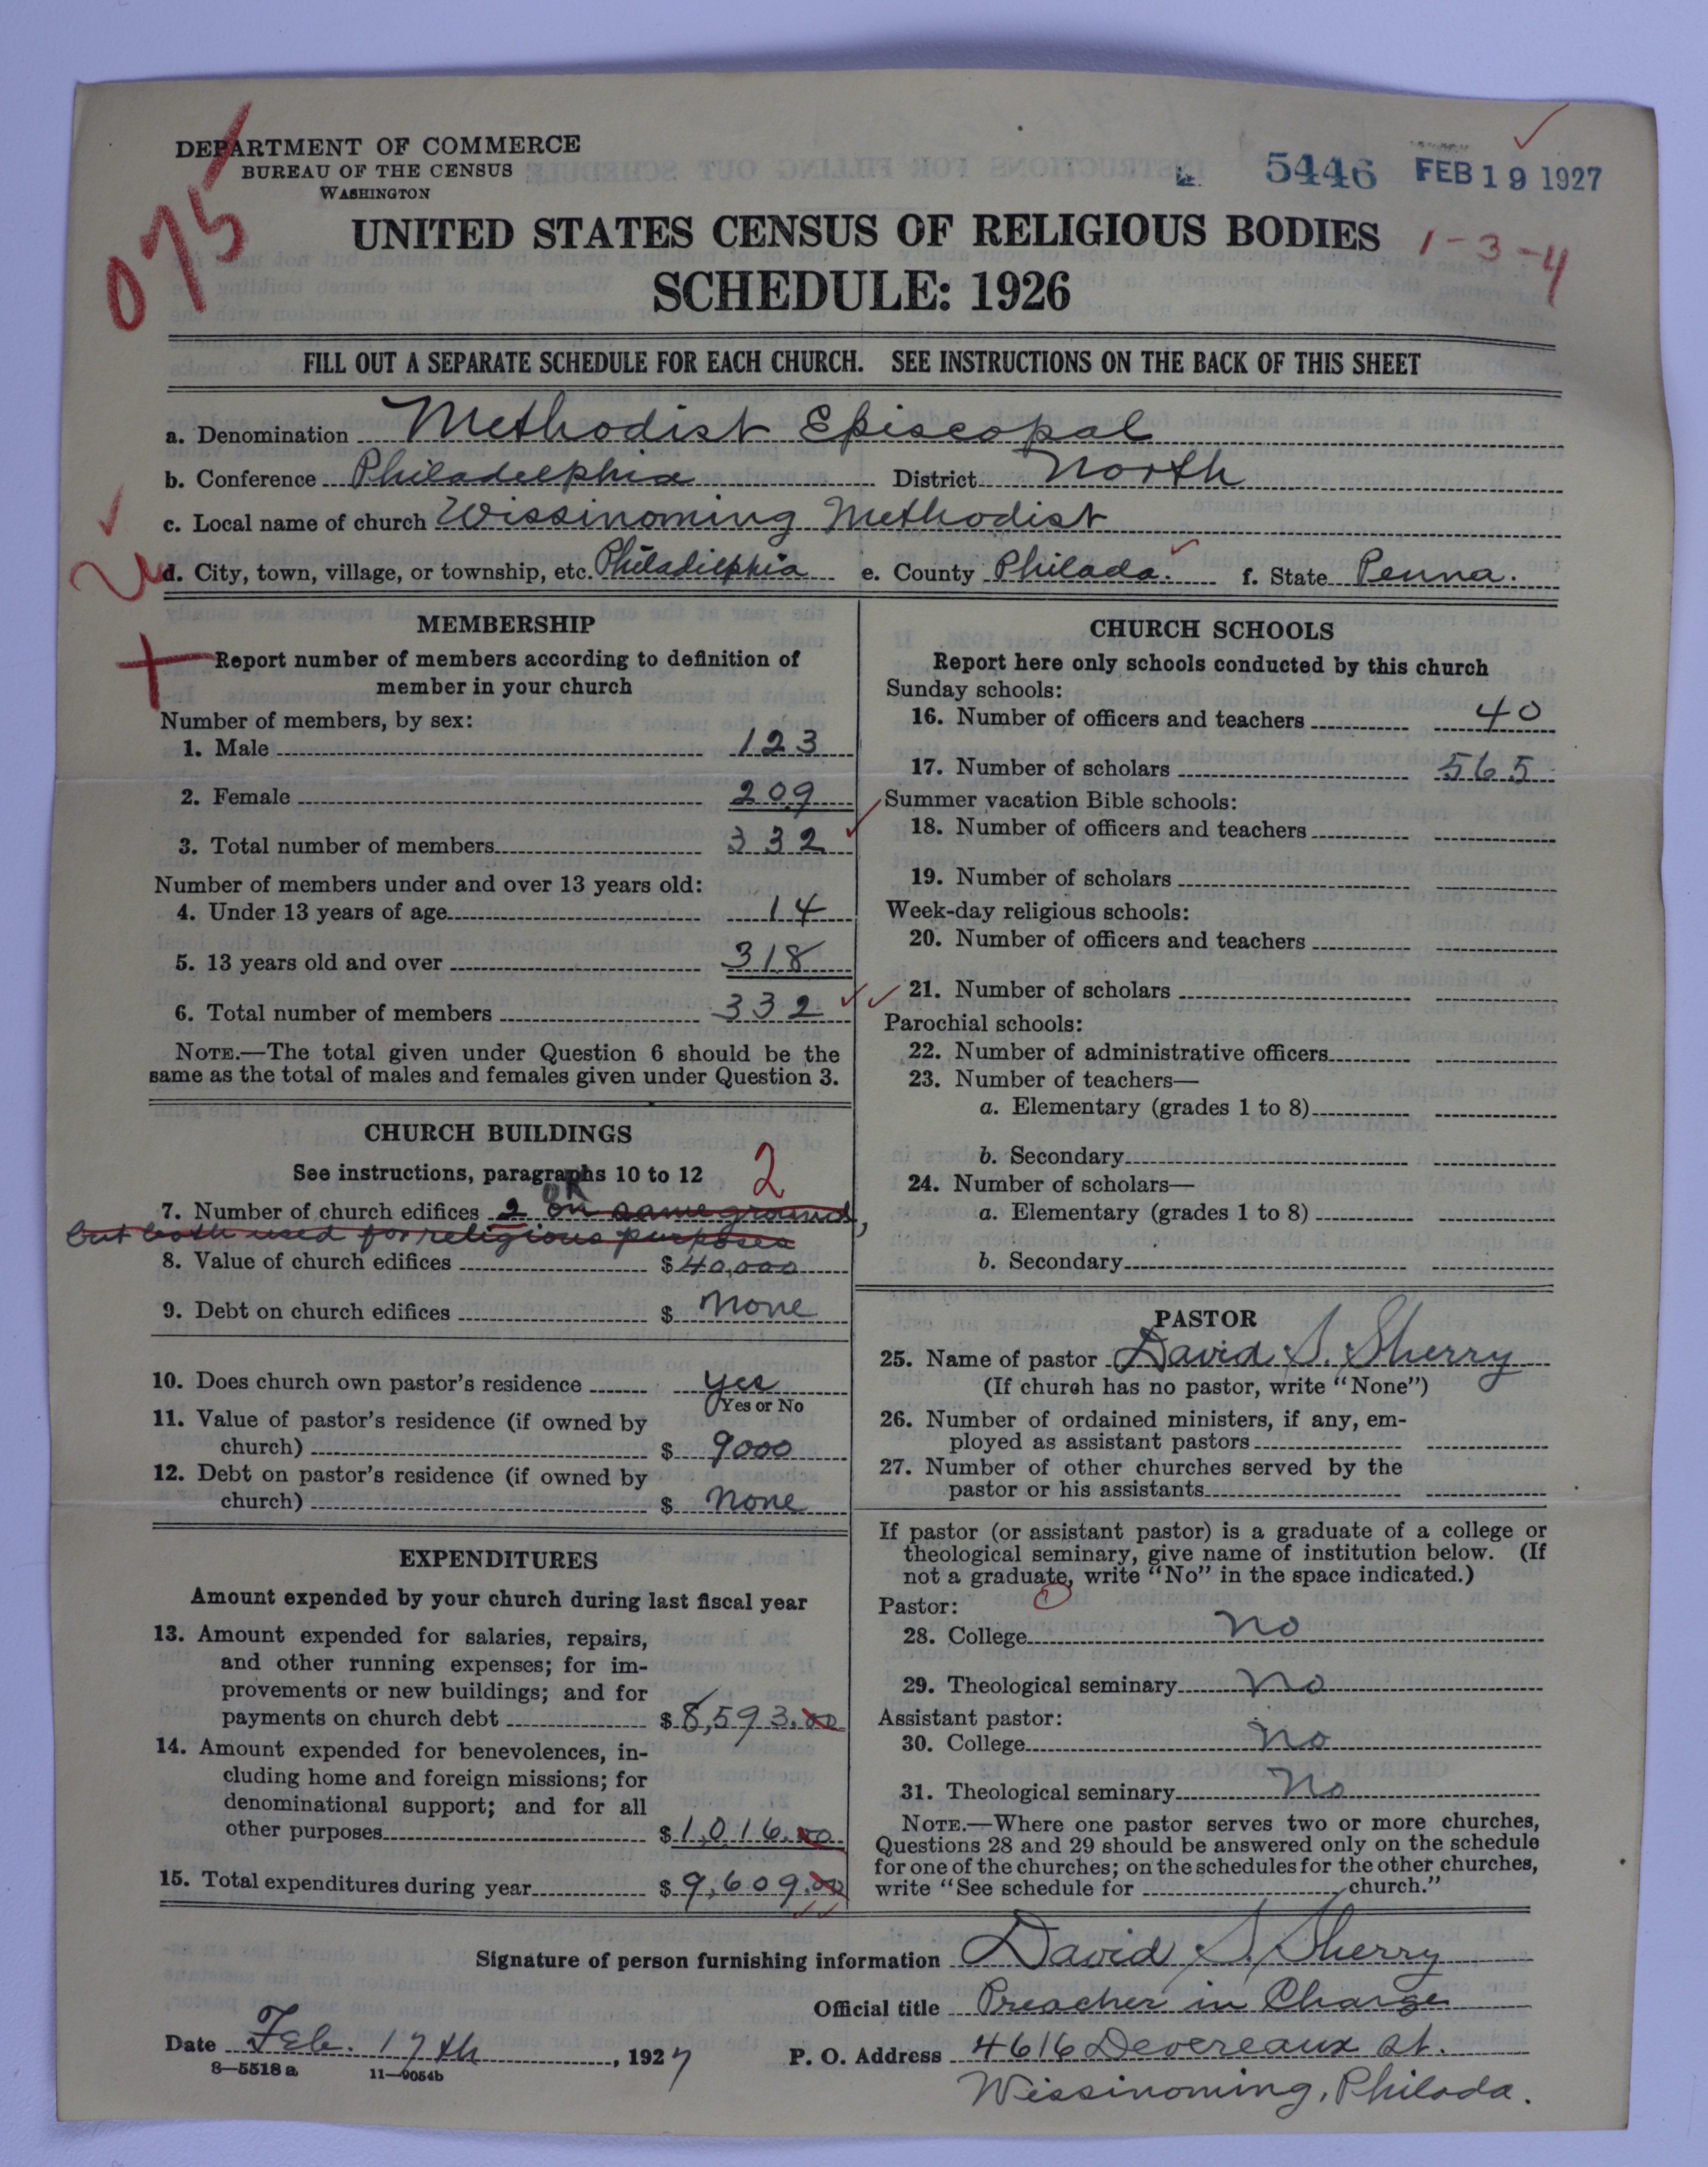 DEPARTMENT OF COMMERCE
BUREAU OF THE CENSUS
WASHINGTON
075
5446 FEB 19 1927
UNITED STATES CENSUS OF RELIGIOUS BODIES
1-3-4
SCHEDULE: 1926
FILL OUT A SEPARATE SCHEDULE FOR EACH CHURCH. SEE INSTRUCTIONS ON THE BACK OF THIS SHEET
a. Denomination Methodist Episcopal
b. Conference Philadelphia District North
c. Local name of church Wissinoming Methodist
d. City, town, village, or township, etc. Philadelphia e. County Philada. f. State Penna.
MEMBERSHIP
Report number of members according to definition of
member in your church
Number of members, by sex:
1. Male 123
2. Female 209
3. Total number of members 332
Number of members under and over 13 years old:
4. Under 13 years of age 14
5. 13 years old and over 318
6. Total number of members 332
NOTE.—The total given under Question 6 should be the
same as the total of males and females given under Question 3.
CHURCH BUILDINGS
See instructions, paragraphs 10 to 12
2
OK
7. Number of church edifices 2 on same ground,
but both used for religious purposes
8. Value of church edifices $40,000
9. Debt on church edifices $ None
10. Does church own pastor's residence yes
Yes or No
11. Value of pastor's residence (if owned by
church) $ 9000
12. Debt on pastor's residence (if owned by
church) $ None
EXPENDITURES
Amount expended by your church during last fiscal year
13. Amount expended for salaries, repairs,
and other running expenses; for im-
provements or new buildings; and for
payments on church debt $ 8,593.00
14. Amount expended for benevolences, in-
cluding home and foreign missions; for
denominational support; and for all
other purposes $ 1,016.00
15. Total expenditures during year $ 9,609.00
CHURCH SCHOOLS
Report here only schools conducted by this church
Sunday schools:
16. Number of officers and teachers 40
17. Number of scholars 565
Summer vacation Bible schools:
18. Number of officers and teachers
19. Number of scholars
Week-day religious schools:
20. Number of officers and teachers
21. Number of scholars
Parochial schools:
22. Number of administrative officers
23. Number of teachers—
a. Elementary (grades 1 to 8)
b. Secondary
24. Number of scholars—
a. Elementary (grades 1 to 8)
b. Secondary
PASTOR
25. Name of pastor David S. Sherry
(If church has no pastor, write "None")
26. Number of ordained ministers, if any, em-
ployed as assistant pastors
27. Number of other churches served by the
pastor or his assistants
If pastor (or assistant pastor) is a graduate of a college or
theological seminary, give name of institution below. (If
not a graduate, write "No" in the space indicated.)
Pastor:
28. College no
29. Theological seminary no
Assistant pastor:
30. College no
31. Theological seminary no
NOTE.—Where one pastor serves two or more churches,
Questions 28 and 29 should be answered only on the schedule
for one of the churches; on the schedules for the other churches,
write "See schedule for church."
Signature of person furnishing information David S. Sherry
Official title Preacher in Charge
Date Feb. 17th, 1927 P. O. Address 4616 Devereaux St.
8—5518 a 11—9054b
Wissinoming, Philada.